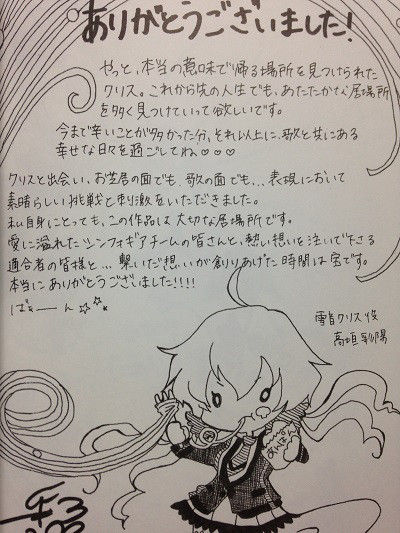 ありがとうございました!
やっと、本当の意味で帰る場所を見つけられた
クリス。これから先の人生でも、あたたかな居場所
を多く見つけていって欲しいです。
今まで辛いことが多かった分、それ以上に、歌と共にある
幸せな日々を過ごしてね♡♡♡
クリスと出会い、お芝居の面でも歌の面でも…表現において
素晴らしい挑戦と刺激をいただきました。
私自身にとっても、この作品は大切な居場所です。
愛に溢れたシンフォギアチームの皆さんと、熱い想いを注いで下さる
適合者の皆様と…繋いだ想いが創りあげた時間は宝です。
本当にありがとうございました!!!!
ばぁーーん☆☆
雪音クリス役
高垣彩陽
あんぱん